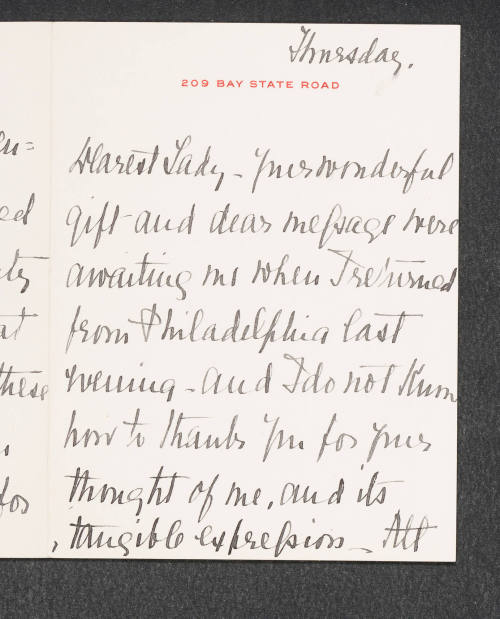 Thursday.
209 BAY STATE ROAD
Dearest Lady - your wonderful
gift and dear message were
awaiting me when I returned
from Philadelphia last
evening - and I do not know
how to thank you for your
thought of me, and its
tangible expression - All
these
for